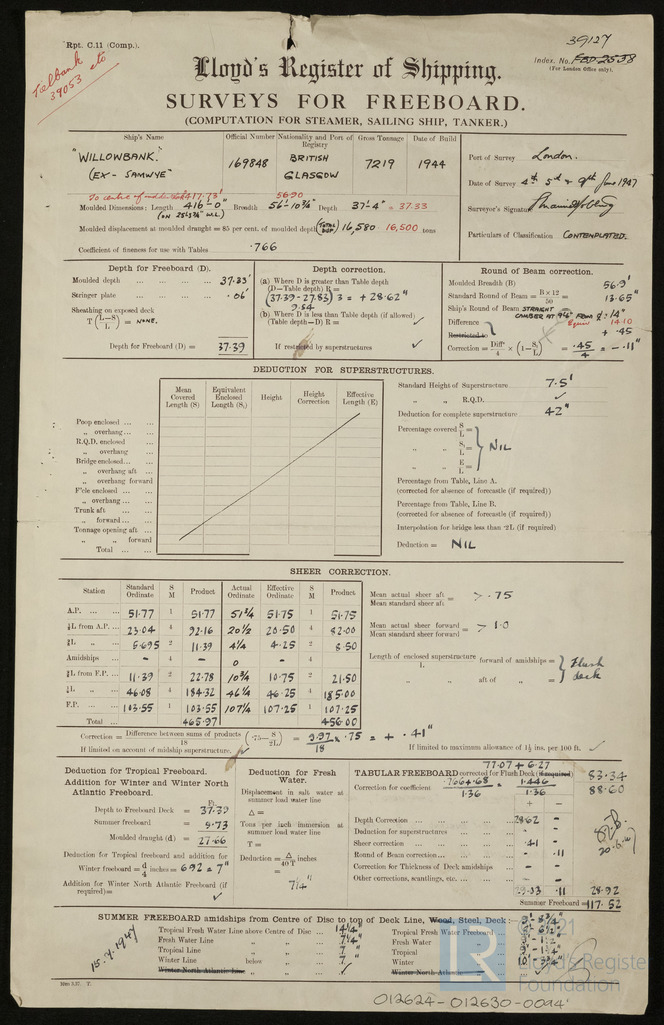 Rpt. C.11 (Comp.).
39127
Index. No. FBD 2538
(For London Office only).
Telbank
39053 etc
Lloyd's Register of Shipping.
SURVEYS FOR FREEBOARD.
(COMPUTATION FOR STEAMER, SAILING SHIP, TANKER.)
Ship's Name Official Number Nationality and Port of Registry Gross Tonnage Date of Build
"WILLOWBANK." 169848 BRITISH 7219 1944
(EX - SAMWYE" GLASGOW
Port of Survey London.
Date of Survey 4th 5th & 9th June 1947
Surveyor's Signature
Particulars of Classification CONTEMPLATED.
417.73' 56.90
Moulded Dimensions: Length 416'-0" Breadth 56'-10¾" Depth 37'-4" = 37.33
Moulded displacement at moulded draught = 85 per cent. of moulded depth 16,580 16,500 tons
Coefficient of fineness for use with Tables .766
Depth for Freeboard (D).
Moulded depth 37.33'
Stringer plate .06
Sheathing on exposed deck
T (L-S/L) = NONE.
Depth for Freeboard (D) = 37.39
Depth correction.
(a) Where D is greater than Table depth
(D—Table depth) R =
(37.39 - 27.83) 3 = + 28.62"
9.54
(b) Where D is less than Table depth (if allowed)
(Table depth—D) R = ✓
If restricted by superstructures ✓
Round of Beam correction.
Moulded Breadth (B) 56.9'
Standard Round of Beam = B × 12 / 50 = 13.65"
Ship's Round of Beam STRAIGHT
= 14"
Difference 14.10
Restricted to + .45
Correction = Diff'/4 × (1-S₁/L) = .45/4 = - .11"
DEDUCTION FOR SUPERSTRUCTURES.
Mean Covered Length (S) Equivalent Enclosed Length (S₁) Height Height Correction Effective Length (E)
Poop enclosed
„ overhang
R.Q.D. enclosed
„ overhang
Bridge enclosed
„ overhang aft
„ overhang forward
F'cle enclosed
„ overhang
Trunk aft
„ forward
Tonnage opening aft
„ „ forward
Total
Standard Height of Superstructure 7.5'
„ „ R.Q.D. ✓
Deduction for complete superstructure 42"
Percentage covered S/L =
„ „ S₁/L = NIL
„ „ E/L =
Percentage from Table, Line A.
(corrected for absence of forecastle (if required))
Percentage from Table, Line B.
(corrected for absence of forecastle (if required))
Interpolation for bridge less than ·2L (if required)
Deduction = NIL
SHEER CORRECTION.
Station Standard Ordinate S M Product Actual Ordinate Effective Ordinate S M Product
A.P. 51.77 1 51.77 51¾ 51.75 1 51.75
⅙L from A.P. 23.04 4 92.16 20½ 20.50 4 82.00
⅓L „ 5.695 2 11.39 4¼ 4.25 2 8.50
Amidships - 4 - 0 - 4
⅓L from F.P. 11.39 2 22.78 10¾ 10.75 2 21.50
⅙L „ 46.08 4 184.32 46¼ 46.25 4 185.00
F.P. 103.55 1 103.55 107¼ 107.25 1 107.25
Total 465.97 456.00
Mean actual sheer aft / Mean standard sheer aft = > .75
Mean actual sheer forward / Mean standard sheer forward = > 1.0
Length of enclosed superstructure / L forward of amidships = Flush
aft of „ = deck
Correction = Difference between sums of products / 18 (·75—S/2L) = 9.97/18 × .75 = + .41"
If limited on account of midship superstructure. ✓
If limited to maximum allowance of 1½ ins. per 100 ft. ✓
Deduction for Tropical Freeboard.
Addition for Winter and Winter North Atlantic Freeboard.
Ft.
Depth to Freeboard Deck = 37.39
Summer freeboard = 9.73
Moulded draught (d) = 27.66
Deduction for Tropical freeboard and addition for
Winter freeboard = d/4 inches = 6.92 = 7"
Addition for Winter North Atlantic Freeboard (if required) = ✓
Deduction for Fresh Water.
Displacement in salt water at summer load water line
Δ =
Tons per inch immersion at summer load water line
T =
Deduction = Δ/40 T inches
=
7¼"
77.07 + 6.27
TABULAR FREEBOARD corrected for Flush Deck (if required) 83.34
Correction for coefficient .766 + .68 / 1.36 = 1.446 / 1.36 88.60
+ -
Depth Correction 28.62 -
Deduction for superstructures -
Sheer correction .41 -
Round of Beam correction - .11
Correction for Thickness of Deck amidships -
Other corrections, scantlings, etc. - -
29.03 .11 28.92
Summer Freeboard = 117.52
SUMMER FREEBOARD amidships from Centre of Disc to top of Deck Line, Wood, Steel, Deck :— 9'-8¾"
15.7.1947
Tropical Fresh Water Line above Centre of Disc 14¼" Tropical Fresh Water Freeboard
Fresh Water Line „ „ 7¼" Fresh Water „
Tropical Line „ „ 7" Tropical „
Winter Line below „ 7" Winter „
Winter North Atlantic Line „ ✓ Winter North Atlantic „
LR
Lloyd's Register
Foundation
012624-012630-0094